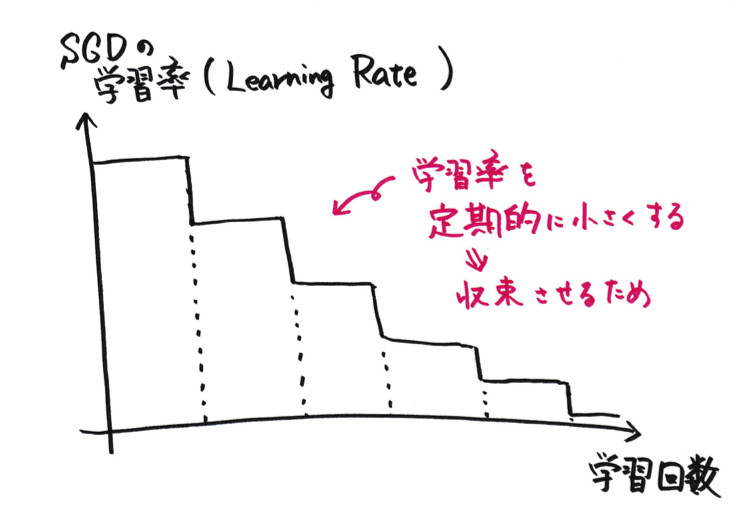 SGDの
学習率(Learning Rate)
学習率を
定期的に小さくする
⇓
収束させるため
学習回数